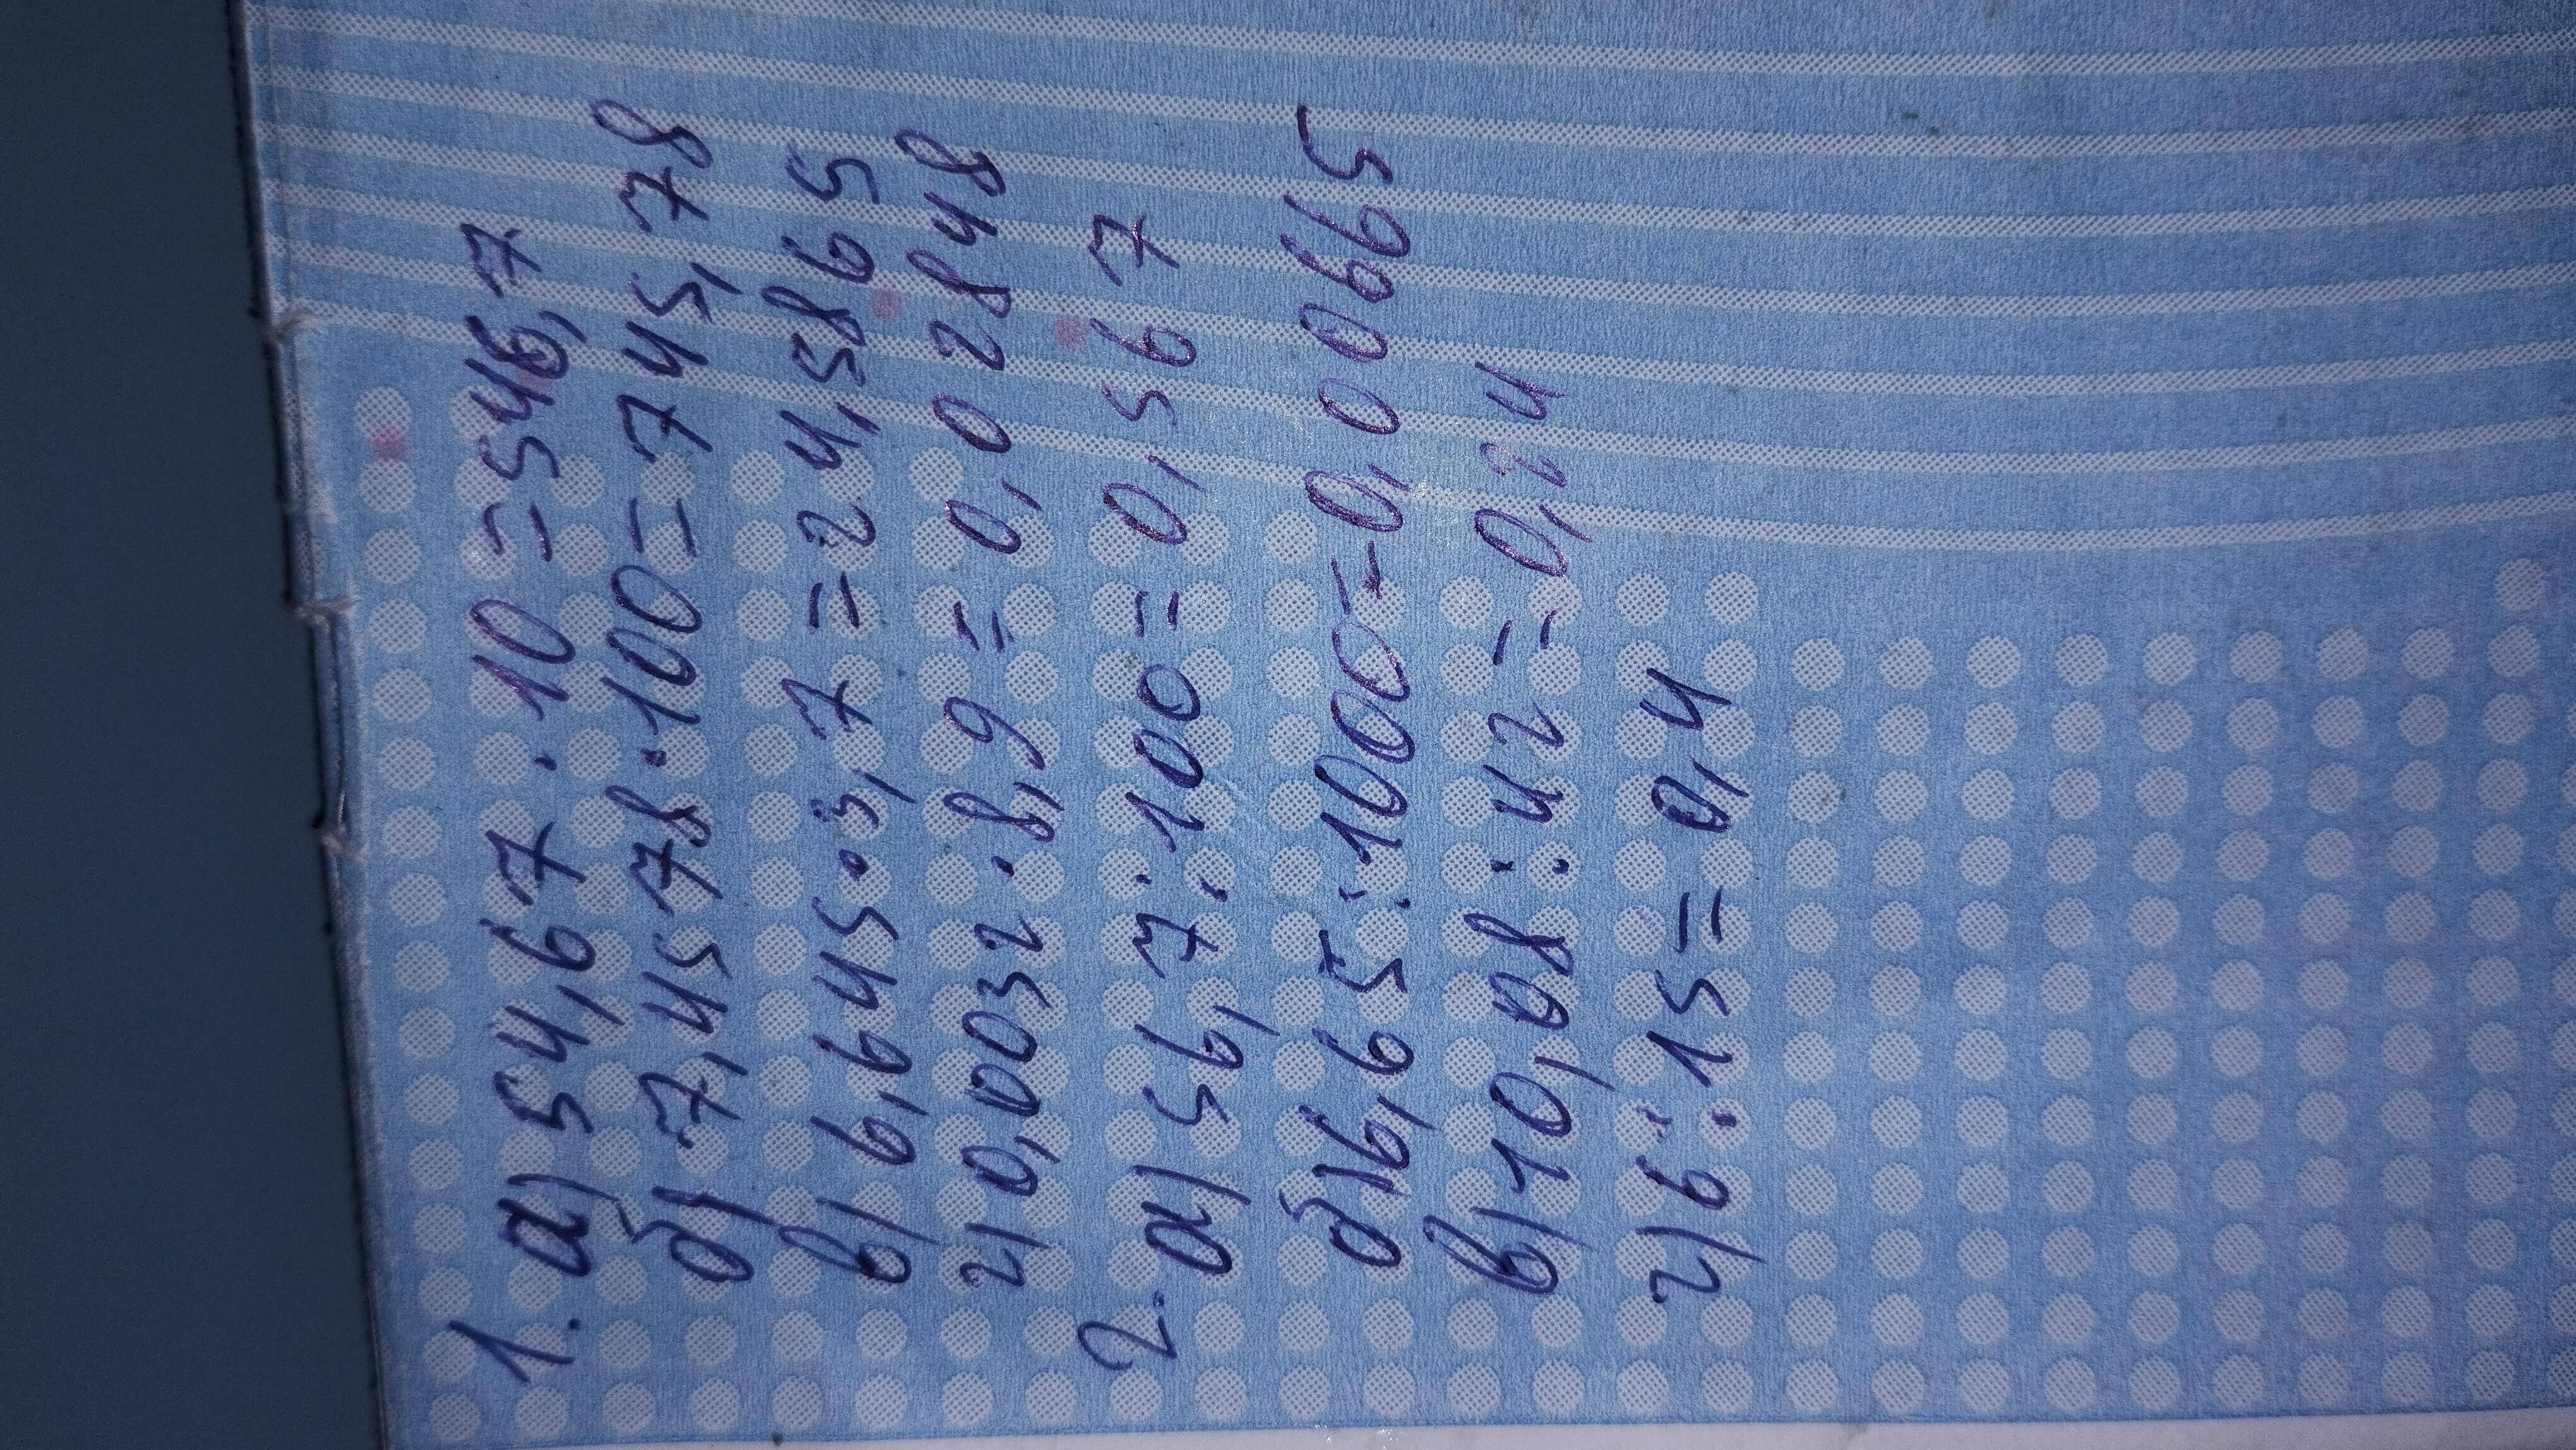 1. а) 54,67 · 10 = 546,7
б) 7,4578 · 100 = 745,78
в) 6,645 · 3,7 = 24,5865
г) 0,0032 · 8,9 = 0,02848
2. а) 56,7 : 100 = 0,567
б) 6,65 : 1000 = 0,00665
в) 10,08 : 42 = 0,24
г) 6 : 15 = 0,4